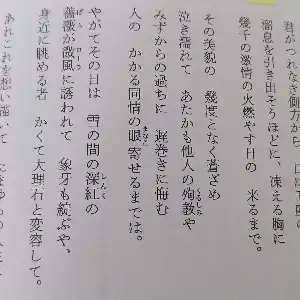 君がつれなき側
溜息を引き出そうほどに、凍える胸に
幾千の激情の火燃やす日の　来るまで。
その美貌の　幾度となく蒼ざめ
泣き濡れて　あたかも他人の殉教や
くるしみ
みずからの過ちに　遅巻きに悔む
人の　かかる同情の眼寄せるまでは。
まなこ
やがてその日は　雪の間の深紅の
しんく
薔薇が微風に誘われて　象牙も綻ぶや、
ば ら
身近に眺める者　かくて大理石と変容して。
あれこれを想い描いて